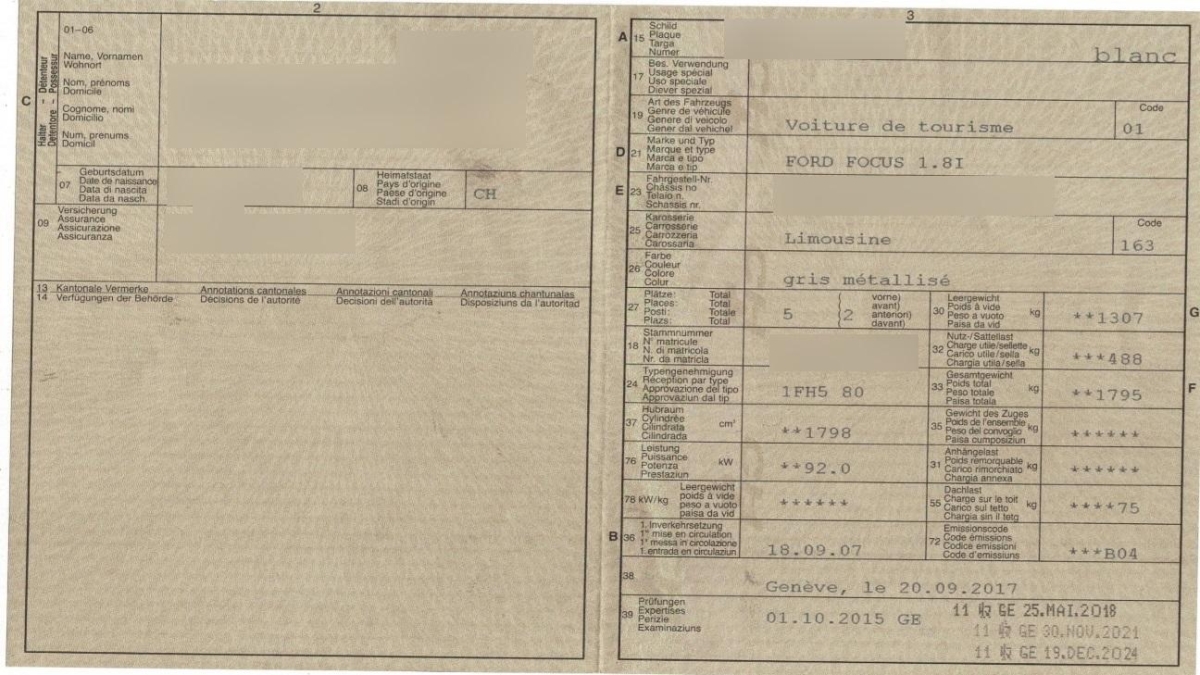 2
01-06
Détenteur
Possessur
Halter
Detentore
C
Name, Vornamen
Wohnort
Nom, prénoms
Domicile
Cognome, nomi
Domicilio
Num, prenums
Domicil
07
Geburtsdatum
Date de naissance
Data di nascita
Data da nasch.
08
Heimatstaat
Pays d'origine
Paese d'origine
Stadi d'origin
CH
09
Versicherung
Assurance
Assicurazione
Assicuranza
13 Kantonale Vermerke Annotations cantonales Annotazioni cantonali Annotaziuns chantunalas
14 Verfügungen der Behörde Décisions de l'autorité Decisioni dell'autorità Disposiziuns da l'autoritad
3
A 15
Schild
Plaque
Targa
Numer
blanc
17
Bes. Verwendung
Usage spécial
Uso speciale
Diever spezial
19
Art des Fahrzeugs
Genre de véhicule
Genere di veicolo
Gener dal vehichel
Voiture de tourisme
Code
01
D 21
Marke und Typ
Marque et type
Marca e tipo
Marca e tip
FORD FOCUS 1.8I
E 23
Fahrgestell-Nr.
Châssis no
Telaio n.
Schassis nr.
25
Karosserie
Carrosserie
Carrozzeria
Carossaria
Limousine
Code
163
26
Farbe
Couleur
Colore
Colur
gris métallisé
27
Plätze: Total
Places: Total
Posti: Totale
Plazs: Total
5
(2
vorne)
avant)
anteriori)
davant)
30
Leergewicht
Poids à vide
Peso a vuoto
Paisa da vid
kg
**1307
G
18
Stammnummer
N° matricule
N. di matricola
Nr. da matricla
32
Nutz-/Sattellast
Charge utile/sellette
Carico utile/sella
Chargia utila/sella
kg
***488
24
Typengenehmigung
Réception par type
Approvazione del tipo
Approvaziun dal tip
1FH5 80
33
Gesamtgewicht
Poids total
Peso totale
Paisa totala
kg
**1795
F
37
Hubraum
Cylindrée
Cilindrata
Cilindrada
cm³
**1798
35
Gewicht des Zuges
Poids de l'ensemble
Peso del convoglio
Paisa cumposiziun
kg
******
76
Leistung
Puissance
Potenza
Prestaziun
kW
**92.0
31
Anhängelast
Poids remorquable
Carico rimorchiato
Chargia annexa
kg
******
78 kW/kg
Leergewicht
poids à vide
peso a vuoto
paisa da vid
******
55
Dachlast
Charge sur le toit
Carico sul tetto
Chargia sin il tetg
kg
****75
B 36
1. Inverkehrsetzung
1re mise en circulation
1a messa in circolazione
1. entrada en circulaziun
18.09.07
72
Emissionscode
Code émissions
Codice emissioni
Code d'emissiuns
***B04
38
Genève, le 20.09.2017
39
Prüfungen
Expertises
Perizie
Examinaziuns
01.10.2015 GE
11 GE 25.MAI.2018
11 GE 30.NOV.2021
11 GE 19.DEC.2024